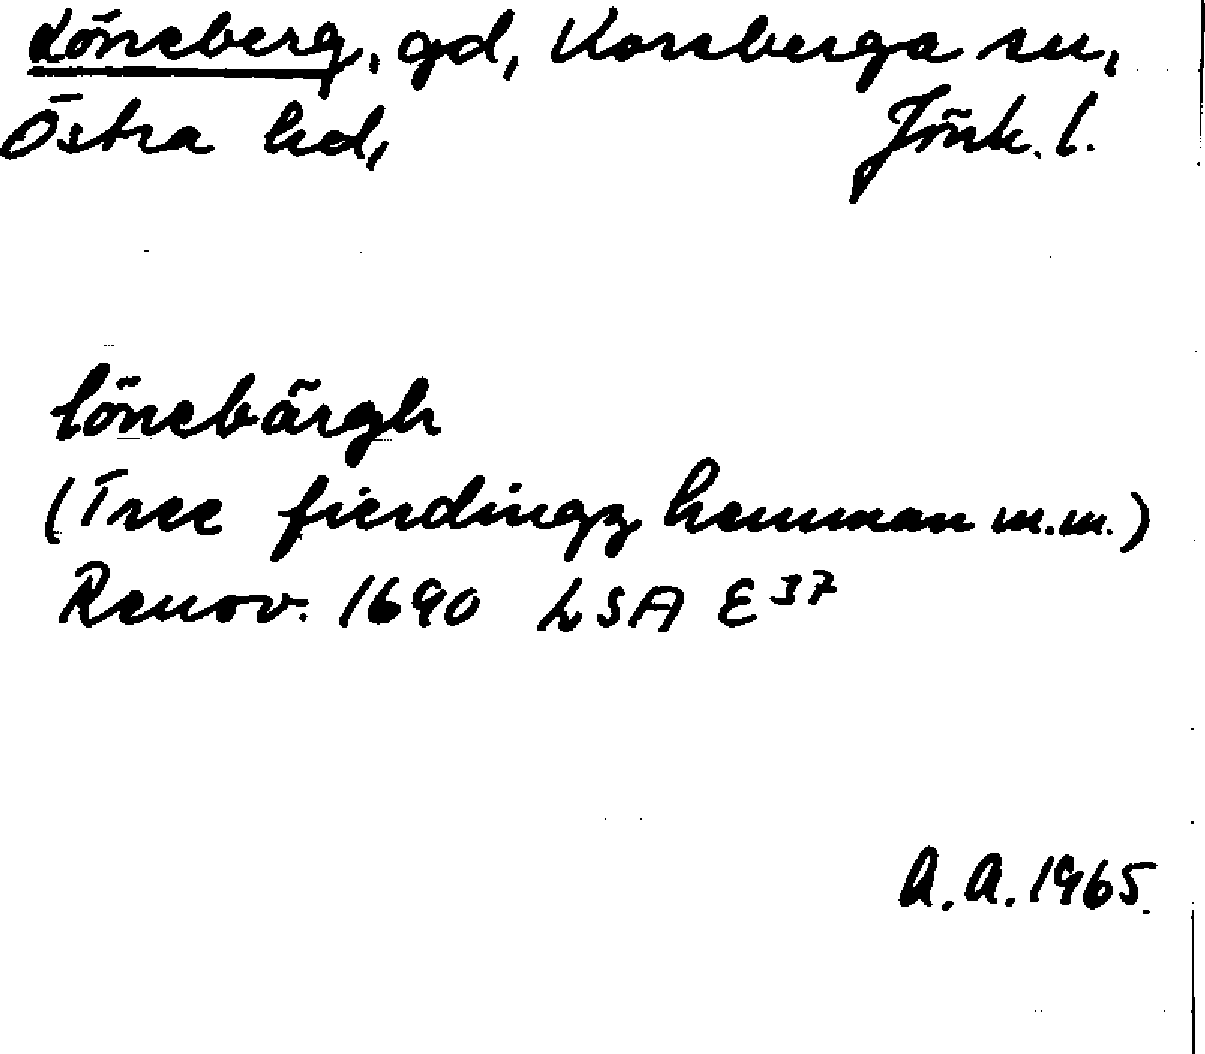 Löneberg, gd, Korsberga sn,
Östra hd, Jönk. l.
Lönebärgh
(Tree fierdingz hemman m.m.)
Renov. 1690 LSA E 37
A.A. 1965